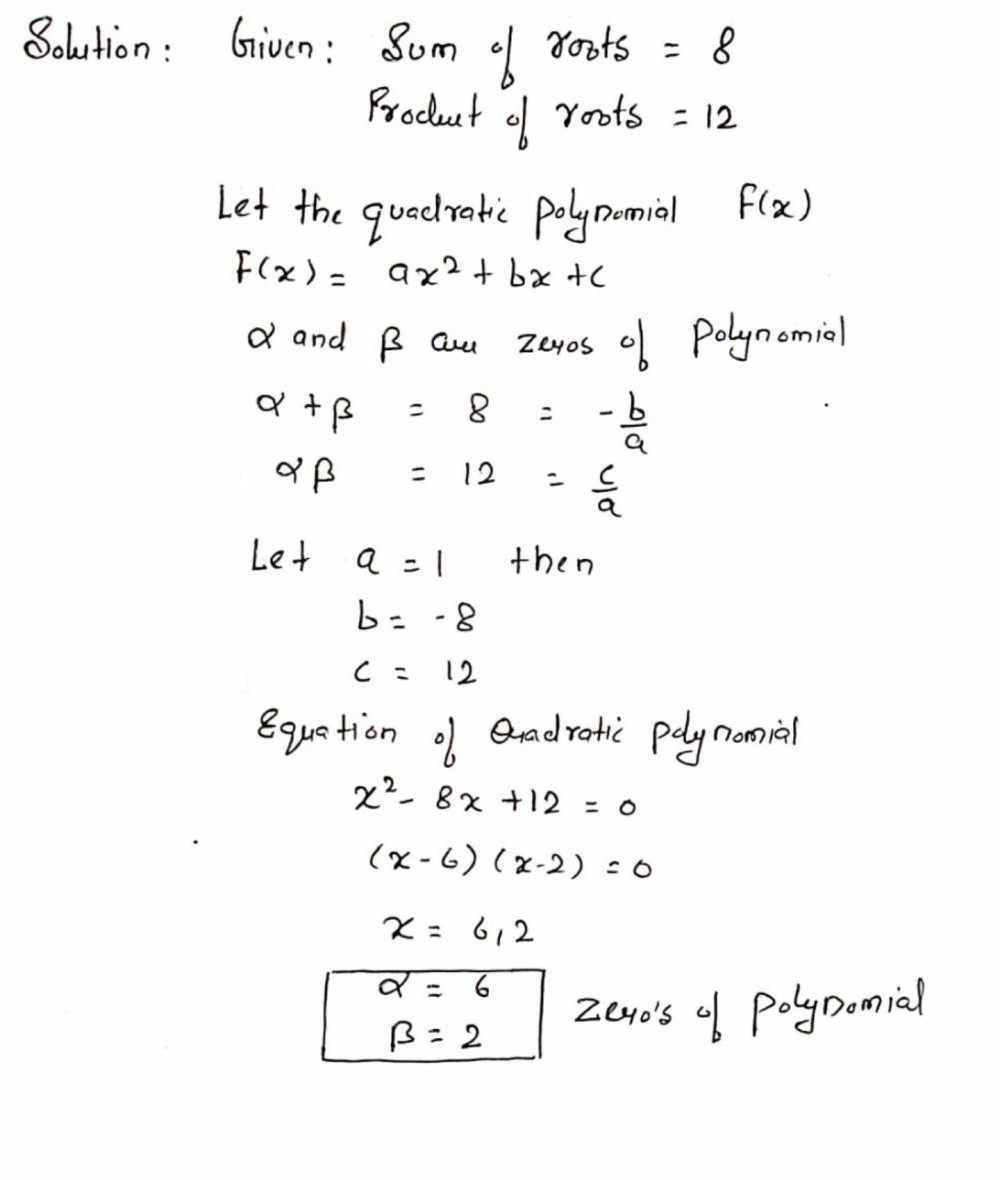 Solution: Given: Sum of roots = 8
Product of roots = 12
Let the quadratic polynomial F(x)
F(x) = ax² + bx + c
α and β are zeros of polynomial
α + β = 8 = -b/a
αβ = 12 = c/a
Let a = 1 then
b = -8
c = 12
Equation of Quadratic polynomial
x² - 8x + 12 = 0
(x-6) (x-2) = 0
x = 6, 2
α = 6
β = 2 zero's of polynomial